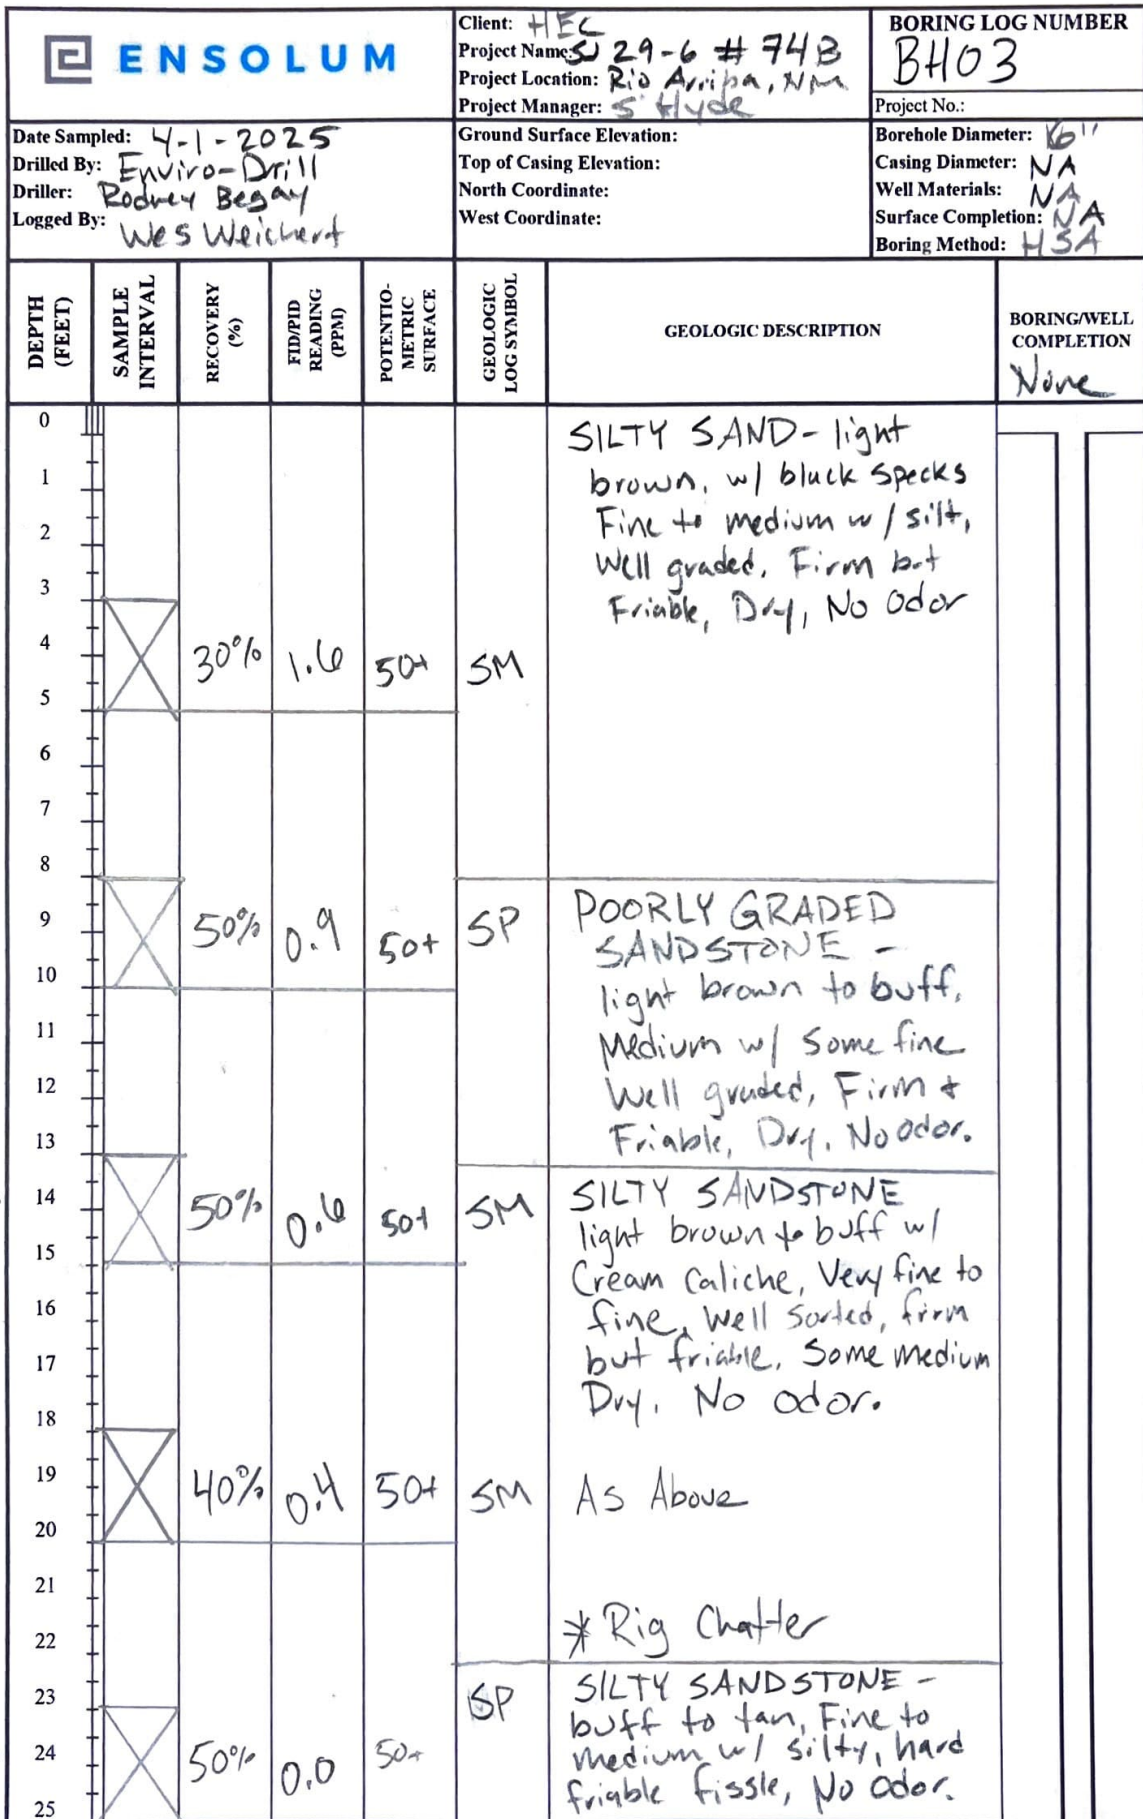 ENSOLUM
Client: HEC
Project Name: SJ 29-6 # 74B
Project Location: Rio Arriba, NM
Project Manager: S Hyde
BORING LOG NUMBER
BH03
Project No.:
Date Sampled: 4-1-2025
Drilled By: Enviro-Drill
Driller: Rodney Begay
Logged By: Wes Weichert
Ground Surface Elevation:
Top of Casing Elevation:
North Coordinate:
West Coordinate:
Borehole Diameter: 6"
Casing Diameter: NA
Well Materials: NA
Surface Completion: NA
Boring Method: HSA
DEPTH
(FEET)
SAMPLE
INTERVAL
RECOVERY
(%)
FID/PID
READING
(PPM)
POTENTIO-
METRIC
SURFACE
GEOLOGIC
LOG SYMBOL
GEOLOGIC DESCRIPTION
BORING/WELL
COMPLETION
None
0
SILTY SAND - light
1
brown, w/ black specks
2
Fine to medium w/ silt,
Well graded, Firm but
3
Friable, Dry, No odor
4
30% 1.6 50+ SM
5
6
7
8
9
50% 0.9 50+ SP
POORLY GRADED
SANDSTONE -
10
light brown to buff,
11
Medium w/ some fine
12
Well graded, Firm +
13
Friable, Dry, No odor.
14
50% 0.6 50+ SM
SILTY SANDSTONE
15
light brown to buff w/
Cream Caliche, Very fine to
16
fine, Well sorted, firm
17
but friable, Some medium
18
Dry, No odor.
19
40% 0.4 50+ SM As Above
20
21
22
* Rig Chatter
23
SP SILTY SANDSTONE -
buff to tan, Fine to
24
50% 0.0 50+ medium w/ silty, hard
25
friable fissle, No odor.